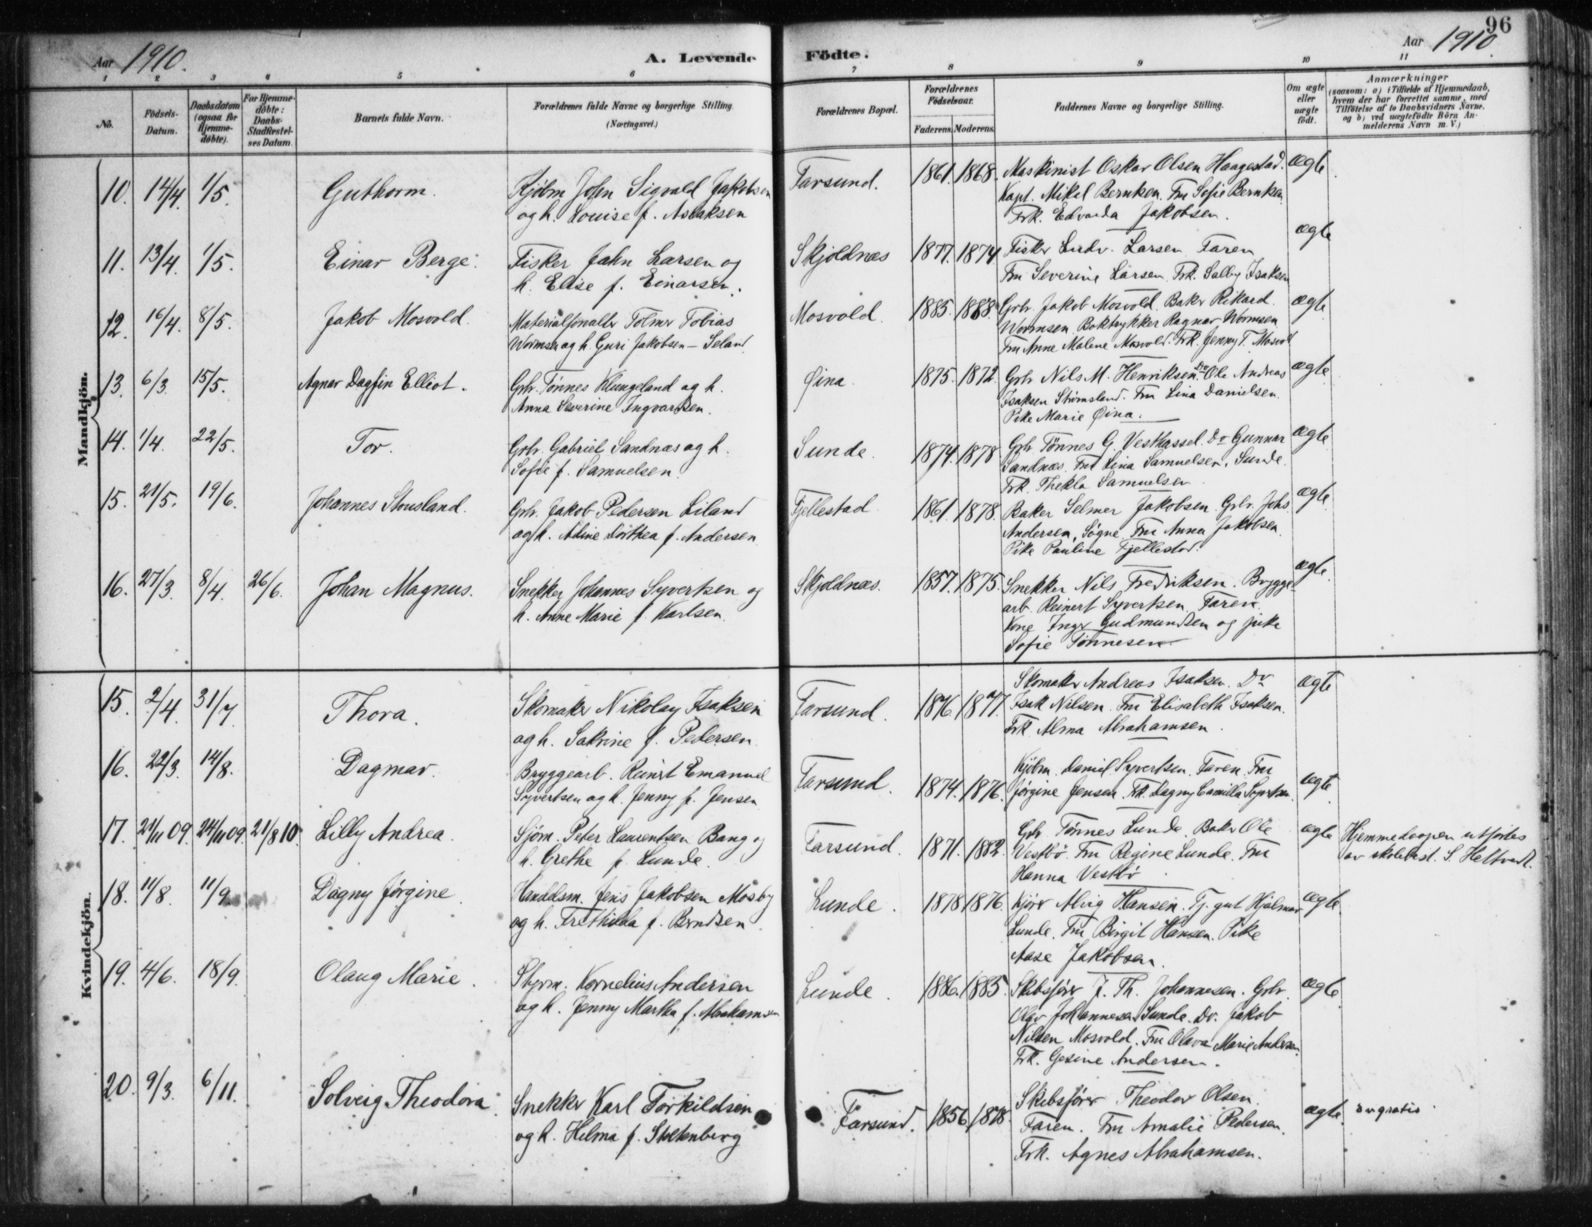 96
Aar 1910. A. Levende Födte. Aar 1910
1 2 3 4 5 6 7 8 9 10 11
No. Födsels-Datum. Daabsdatum (ogsaa for Hjemmedöbte). For Hjemmedöbte: Daabs-Stadfæstelses Datum. Barnets fulde Navn. Forældrenes fulde Navne og borgerlige Stilling. (Næringsvei.) Forældrenes Bopæl. Forældrenes Fødselsaar. Faderens. Moderens. Faddernes Navne og borgerlige Stilling. Om ægte eller uægte født. Anmærkninger (saasom: a) i Tilfælde af Hjemmedaab, hvem der har forrettet samme, med Tilføielse af to Daabsvidners Navne, og b) ved uægtefödte Börn Anmelderens Navn m. V.)
Mandkjön.
10. 14/4. 1/5. Guthorm. Kjøbm John Sigvald Jakobsen
og h. Louise f. Aslaksen
Farsund. 1861. 1868. Maskinist Oskar Olsen Haagestad. ægte
Kapt. Mikal Berntsen. Fru Sofie Berntsen
Frk. Edvarda Jakobsen.
11. 13/4. 1/5. Einar Berge. Fisker John Larsen og
h. Elise f. Einarsen.
Skjoldnæs 1877. 1874 Fisker Ludv. Larsen Faren ægte
Fru Severine Larsen Frk. Salby Isaksen
12. 16/4. 8/5. Jakob Mosvold. Materialforvalter Tolmer Tobias
Wormsen og h. Guri Jakobsen – Seland
Mosvold. 1885. 1888 Grbr. Jakob Mosvold. Baker Rikard ægte
Wormsen Boktrykker Ragnar Wormsen
Fru Anne Malene Mosvold. Frk. Jenny T. Mosvold
13. 6/3. 15/5. Agnar Dagfin Elliot. Grbr. Tønnes Klungeland og h.
Anna Severine Ingvartsen.
Øina. 1875. 1872. Grbr. Nils M. Henriksen. Do Ole Andreas ægte
Isaksen Strømsland. Fru Lina Danielsen.
Pike Marie Øina.
14. 1/4. 22/5. Tor. Grbr. Gabriel Sandnæs og h.
Sofie f. Samuelsen.
Sunde. 1874. 1878 Grbr. Tønnes G. Vesthassel. Do Gunnar ægte
Sandnæs. Fru Lina Samuelsen, Sunde.
Frk. Thekla Samuelsen.
15. 21/5. 19/6. Johannes Stousland. Grbr. Jakob Pedersen Eiland
og h. Adine Dorthea f. Andersen
Fjellestad 1861. 1878. Baker Selmer Jakobsen. Grbr. Johs. ægte
Andersen, Søgne. Fru Anna Jakobsen.
Pike Pauline Fjellestad.
16. 27/3. 8/4. 26/6. Johan Magnus. Snekker Johannes Syvertsen og
h. Anne Marie f. Karlsen.
Skjoldnæs. 1857. 1875. Snekker Nils Fredriksen. Brygge ægte.
arb. Reinert Syvertsen Faren
Kone Inger Gudmundsen og pike
Sofie Tønnesen
Kvindekjön.
15. 2/4. 31/7. Thora. Skomaker Nikolay Isaksen
og h. Sakrine f. Pedersen.
Farsund. 1876. 1877. Skomaker Andreas Isaksen. Do ægte
Isak Nilsen. Fru Elisabeth Isaksen.
Frk Alma Abrahamsen.
16. 22/3. 14/8. Dagmar. Bryggearb. Reinert Emanuel
Syvertsen og h. Jenny f. Jensen
Farsund. 1874. 1876. Kjøbm. Daniel Syvertsen. Faren. Fru ægte
Jørgine Jensen. Frk Dagny Camilla Syvertsen
17. 21/11 09. 24/11 09. 21/8 10. Lilly Andrea. Sjøm. Peter Laurentsen Bang og
h. Grethe f. Lunde.
Farsund. 1871. 1882. Grbr. Tønnes Lunde. Baker Ole ægte Hjemmedaapen utførtes
Vestbø. Fru Regine Lunde. Fru av skolebest. S. Heltvedt.
Hanna Vestbø
18. 11/8. 11/9. Dagny Jørgine. Handelsm. Jens Jakobsen Mosby
og h. Frethilda f. Berndsen.
Lunde. 1878. 1876. Kjører Alvig Hansen. Tj. gut Hjalmar ægte
Lunde. Fru Birgit Hansen. Pike
Aase Jakobsen.
19. 4/6. 18/9. Olaug Marie. Styrm. Kornelius Andersen
og h. Jenny Martha f. Abrahamsen
Lunde. 1886. 1885. Skibsfører J. Th. Johannesen. Grbr. ægte
Olav Johannesen Sunde. Do. Jakob
Nilsen Mosvold. Fru Olava Marie Andersen
Frk. Gesine Andersen.
20. 9/3. 6/11. Solveig Theodora. Snekker Karl Torkildsen
og h. Helma f. Stoltenberg
Farsund. 1856. 1878. Skibsfører Theodor Olsen. ægte.
Faren. Fru Amalie Pedersen.
Frk. Agnes Abrahamsen.